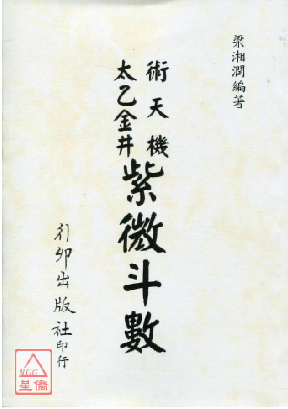 梁湘潤編著
術天機
太乙金井
紫微斗數
行卯出版社印行
MGC
星僑